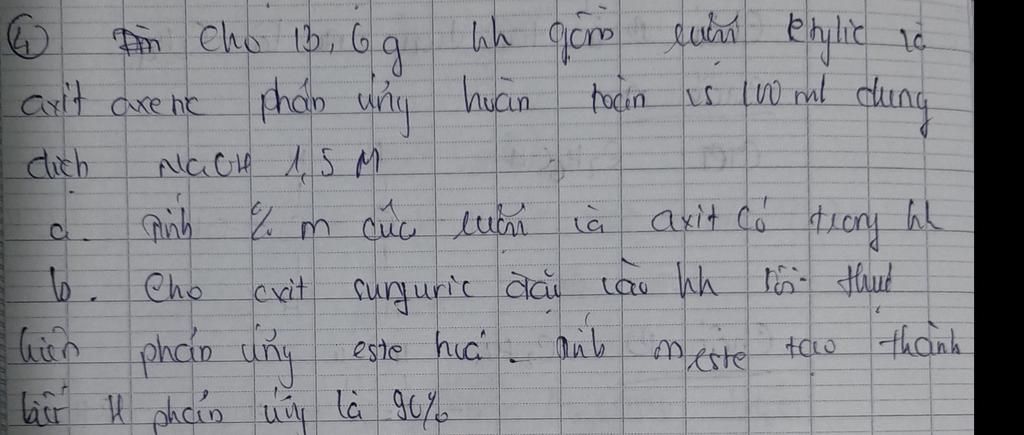 ④ Cho 13,6g hh gồm rượu etylic và
axit axetic phản ứng hoàn toàn vs 100 ml dung
dịch NaOH 1,5 M
a. Tính % m của rượu và axit có trong hh
b. Cho axit sunfuric đặc vào hh rồi thực
hiện phản ứng este hoá. Tính m este tạo thành
biết H phản ứng là 90%